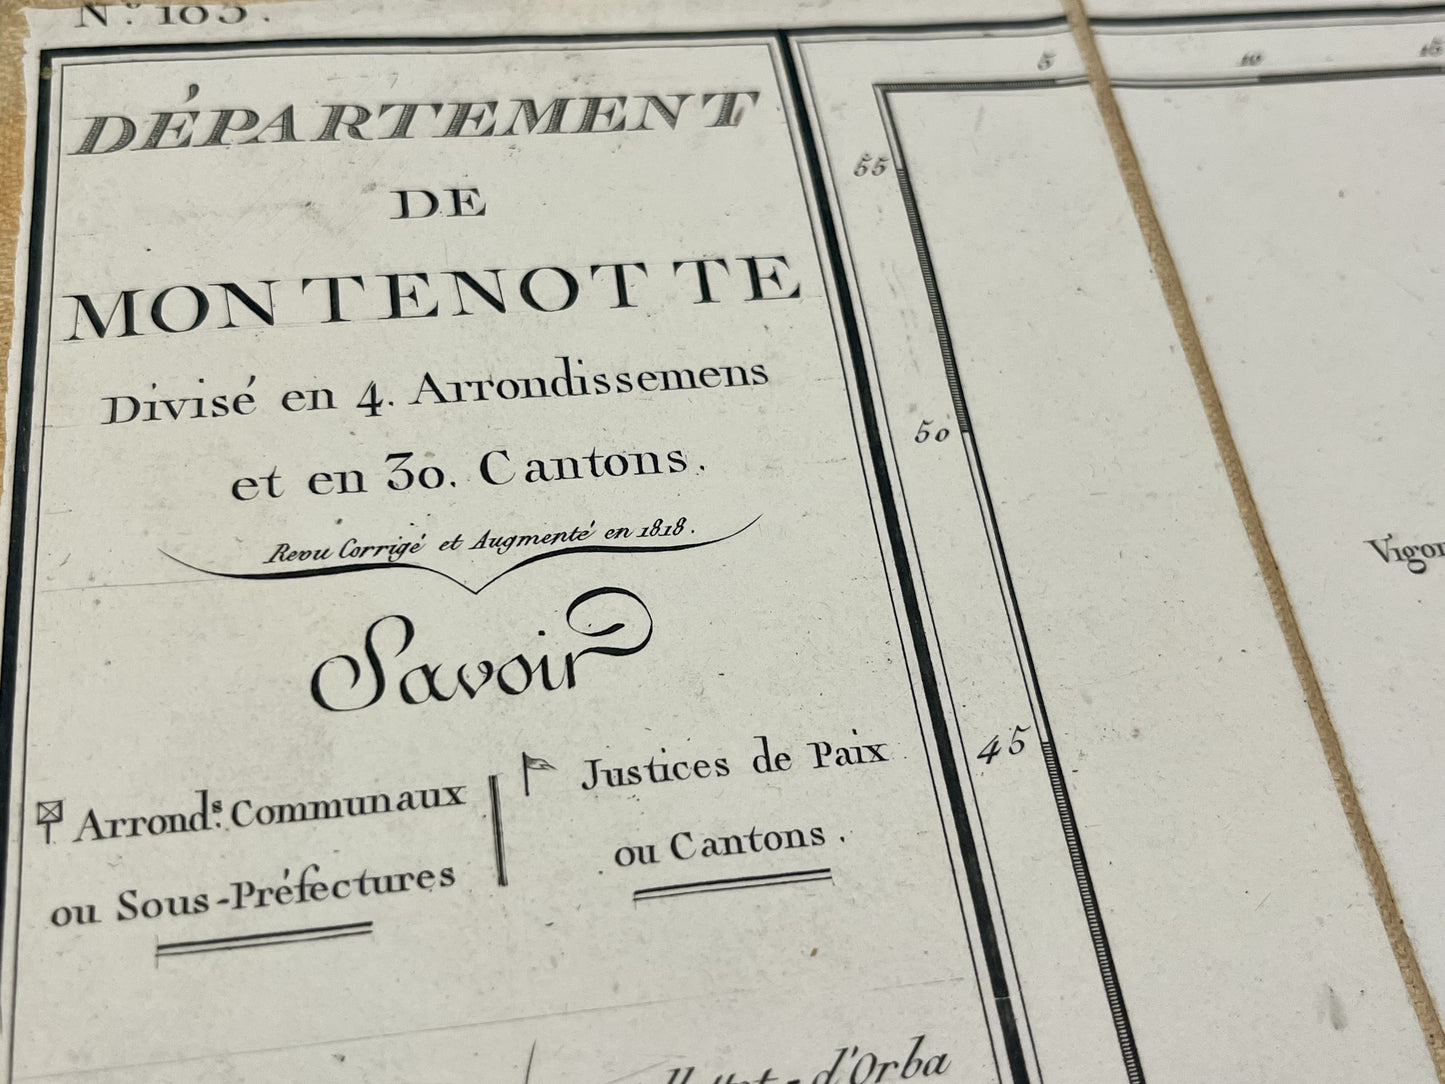 N.º 103.
DÉPARTEMENT
DE
MONTENOTTE
Divisé en 4. Arrondissemens
et en 30. Cantons.
Revu Corrigé et Augmenté en 1818.
Savoir
Arrond.ˢ Communaux
ou Sous-Préfectures
Justices de Paix
ou Cantons.
d'Orba
5
10
15
55
50
45